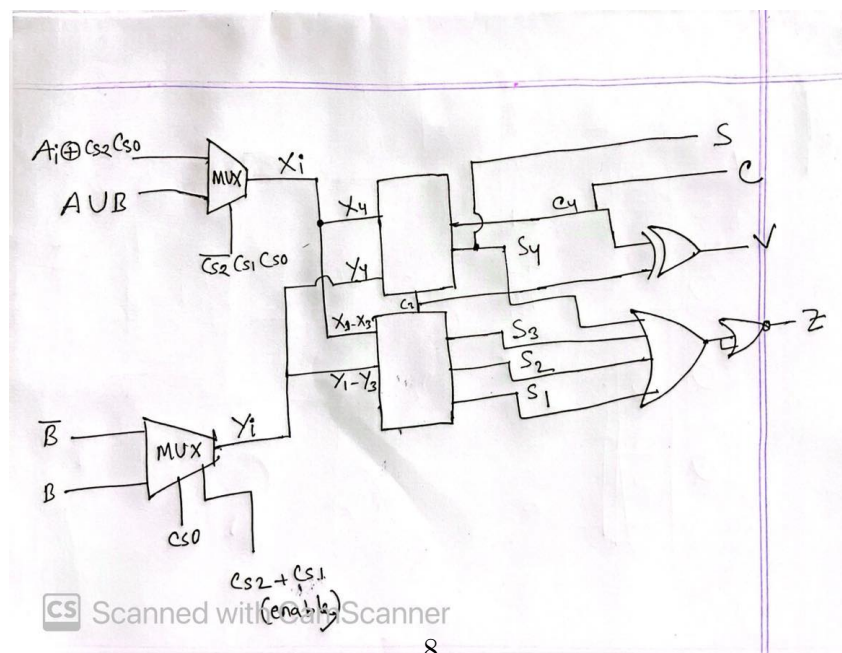 Ai⊕CS2CS0
AUB
MUX
Xi
C̅S̅2̅ CS1 CS0
X4
Y4
C4
S4
S
C
V
X1-X3
Y1-Y3
S3
S2
S1
Z
B̅
B
MUX
Yi
CS0
CS2 + CS1
(enable)
CS Scanned with CamScanner
8